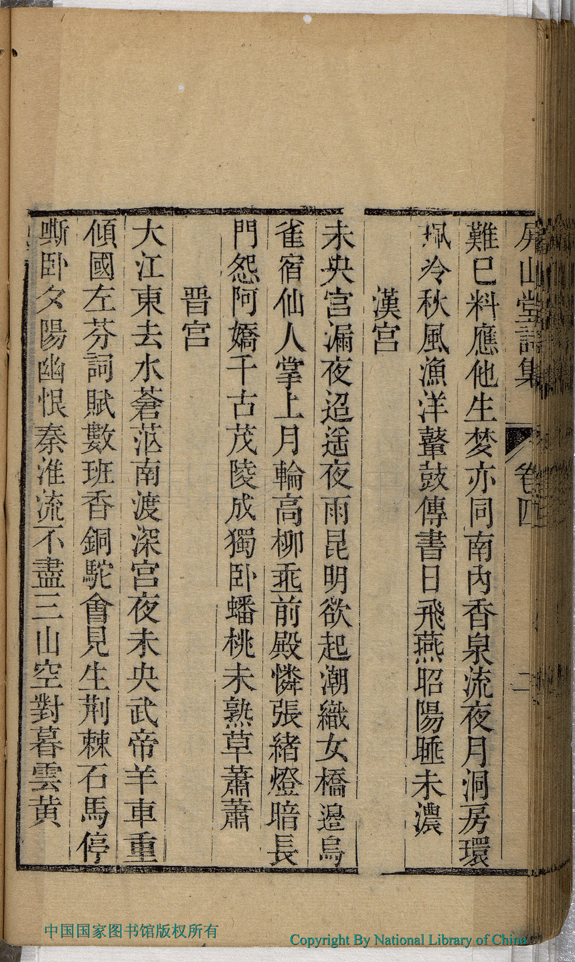 屏山堂詩集 卷四 二
難已料應他生梦亦同南內香泉流夜月洞房環
珮冷秋風漁洋鼙鼓傳書日飛燕昭陽睡未濃
漢宮
未央宮漏夜迢遥夜雨昆明欲起潮織女橋邉烏
雀宿仙人掌上月輪高柳垂前殿憐張緒燈暗長
門怨阿嬌千古茂陵成獨卧蟠桃未熟草蕭蕭
晋宮
大江東去水蒼茫南渡深宮夜未央武帝羊車重
傾國左芬詞賦數班香銅駝會見生荆棘石馬停
嘶卧夕陽幽恨秦淮流不盡三山空對暮雲黄
中国国家图书馆版权所有
Copyright By National Library of China